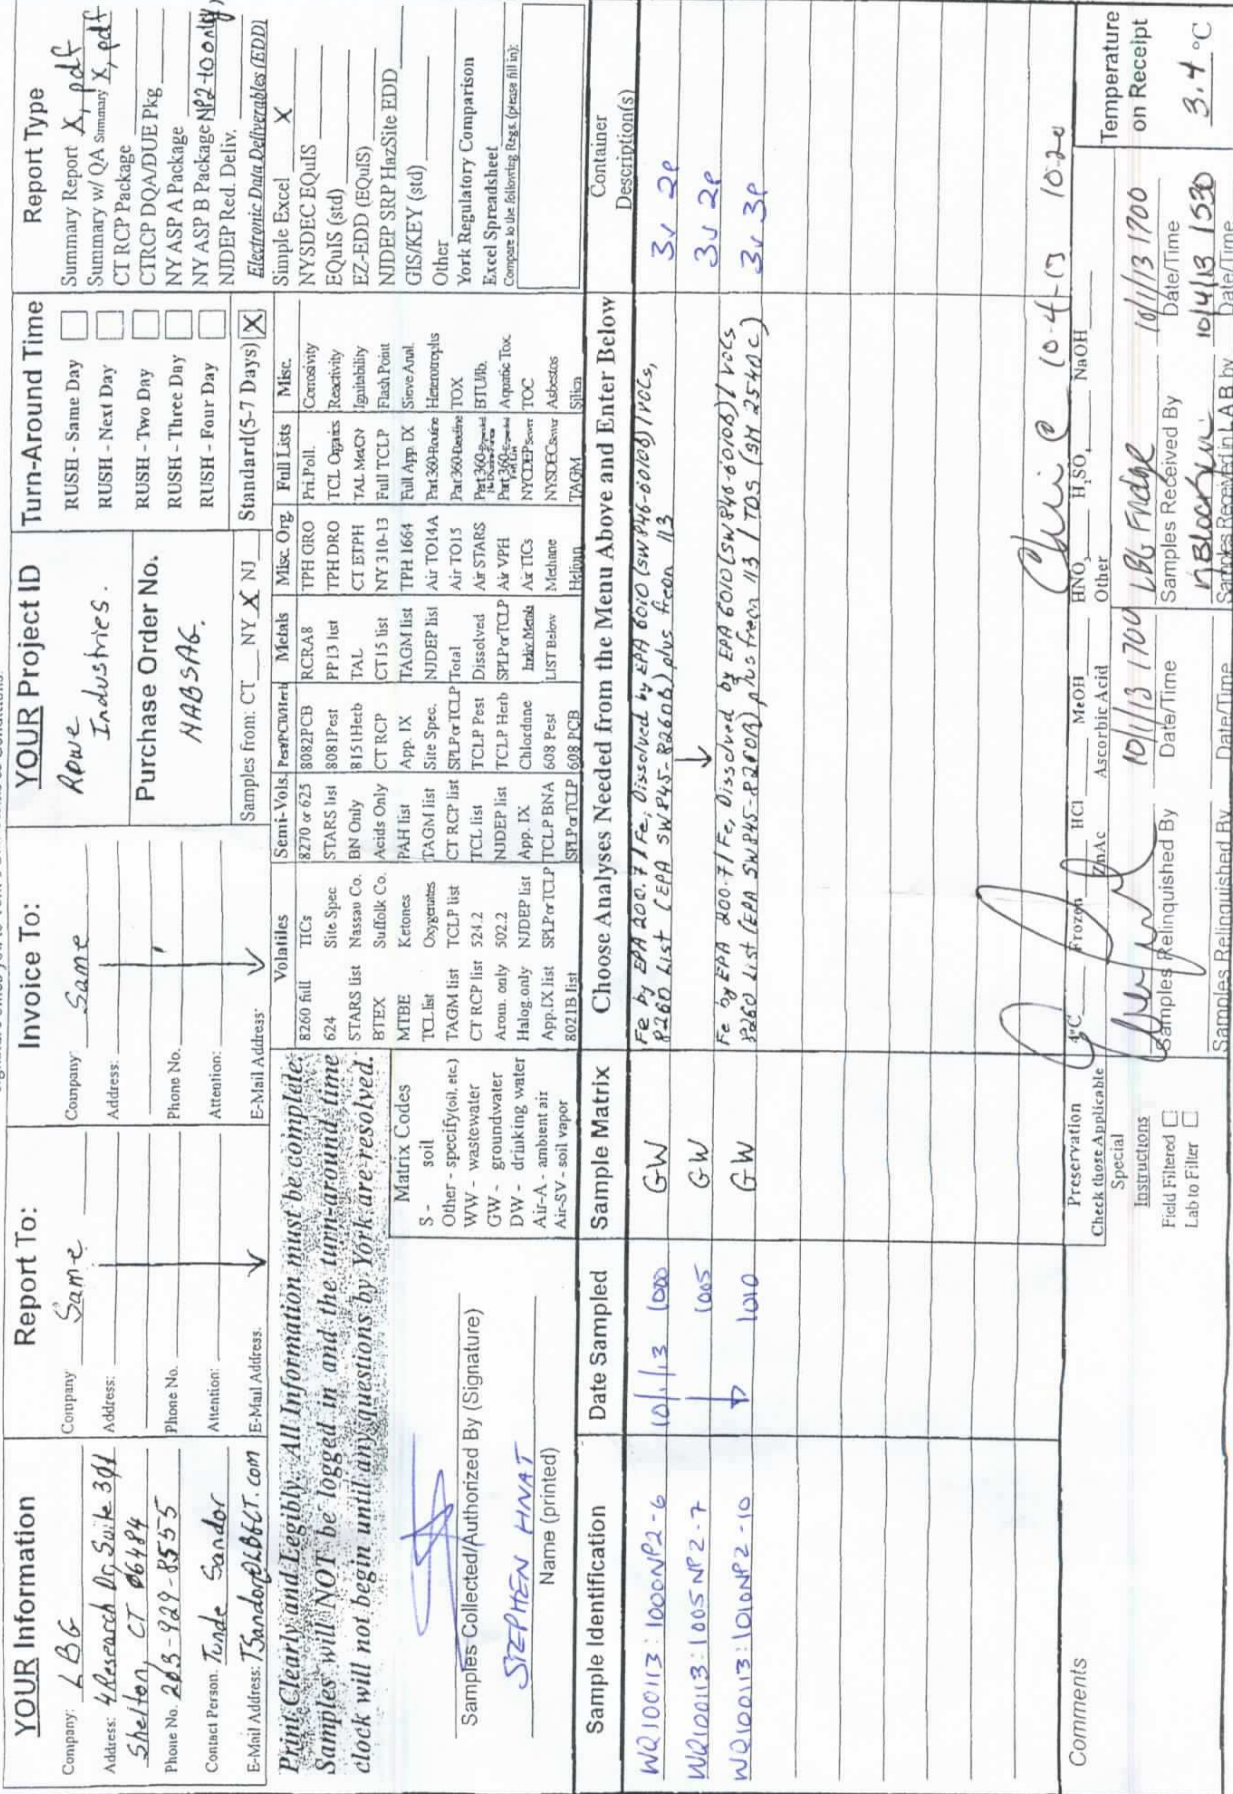 YOUR Information
Company: LBG
Address: 4 Research Dr, Suite 301
Shelton, CT 06484
Phone No. 203-929-8555
Contact Person. Tunde Sandor
E-Mail Address: TSandor@LBGCT.com
Report To:
Company Same
Address:
Phone No.
Attention:
E-Mail Address.
Invoice To:
Company: Same
Address:
Phone No.
Attention:
E-Mail Address:
YOUR Project ID
Rowe
Industries.
Purchase Order No.
NABSAG.
Samples from: CT NY X NJ
Turn-Around Time
RUSH - Same Day
RUSH - Next Day
RUSH - Two Day
RUSH - Three Day
RUSH - Four Day
Standard(5-7 Days) X
Report Type
Summary Report X, pdf
Summary w/ QA Summary X, pdf
CT RCP Package
CTRCP DQA/DUE Pkg
NY ASP A Package
NY ASP B Package NP2-10 only)
NJDEP Red. Deliv.
Electronic Data Deliverables (EDD)
Simple Excel X
NYSDEC EQuIS
EQuIS (std)
EZ-EDD (EQuIS)
NJDEP SRP HazSite EDD
GIS/KEY (std)
Other
York Regulatory Comparison
Excel Spreadsheet
Compare to the following Regs. (please fill in):
Print Clearly and Legibly. All Information must be complete.
Samples will NOT be logged in and the turn-around time
clock will not begin until any questions by York are resolved.
Samples Collected/Authorized By (Signature)
STEPHEN HNAT
Name (printed)
Matrix Codes
S - soil
Other - specify(oil, etc.)
WW - wastewater
GW - groundwater
DW - drinking water
Air-A - ambient air
Air-SV - soil vapor
Volatiles
8260 full TICs
624 Site Spec
STARS list Nassau Co.
BTEX Suffolk Co.
MTBE Ketones
TCL list Oxygenates
TAGM list TCLP list
CT RCP list 524.2
Arom. only 502.2
Halog. only NJDEP list
App.IX list SPLP or TCLP
8021B list
Semi-Vols.
8270 or 625
STARS list
BN Only
Acids Only
PAH list
TAGM list
CT RCP list
TCL list
NJDEP list
App. IX
TCLP BNA
SPLP or TCLP
Pest/PCB/Herb
8082PCB
8081Pest
8151Herb
CT RCP
App. IX
Site Spec.
SPLP or TCLP
TCLP Pest
TCLP Herb
Chlordane
608 Pest
608 PCB
Metals
RCRA8
PP13 list
TAL
CT15 list
TAGM list
NJDEP list
Total
Dissolved
SPLP or TCLP
Indiv. Metals
LIST Below
Misc. Org.
TPH GRO
TPH DRO
CT ETPH
NY 310-13
TPH 1664
Air TO14A
Air TO15
Air STARS
Air VPH
Air TICs
Methane
Helium
Full Lists
Pri.Poll.
TCL Organics
TAL MetCN
Full TCLP
Full App. IX
Part 360-Routine
Part 360-Baseline
NYCDEP Sewer
NYSDEC Sewer
TAGM
Misc.
Corrosivity
Reactivity
Ignitability
Flash Point
Sieve Anal.
Heterotrophs
TOX
BTU/lb.
Aquatic Tox.
TOC
Asbestos
Silica
Sample Identification
Date Sampled
Sample Matrix
Choose Analyses Needed from the Menu Above and Enter Below
Container
Description(s)
WQ100113:1000NP2-6 10/1/13 1000 GW Fe by EPA 200.7 / Fe, Dissolved by EPA 6010 (SW846-6010B) / VOCs, 3v 2P
8260 List (EPA SW845-8260B) plus freon 113
WQ100113:1005NP2-7 1005 GW 3v 2P
WQ100113:1010NP2-10 1010 GW Fe by EPA 200.7 / Fe, Dissolved by EPA 6010 (SW846-6010B) / VOCs 3v 3P
8260 List (EPA SW845-8260B) plus freon 113 / TDS (SM 2540C)
10-4-13 10:20
Comments
Preservation
Check those Applicable
Special
Instructions
Field Filtered
Lab to Filter
4°C Frozen HCl MeOH HNO3 H2SO4 NaOH
ZnAc Ascorbic Acid Other
10/1/13 1700 LBG Fridge 10/1/13 1700
Samples Relinquished By Date/Time Samples Received By Date/Time
10/4/13 1530
Samples Relinquished By Date/Time Samples Received in LAB by Date/Time
Temperature
on Receipt
3.4 °C